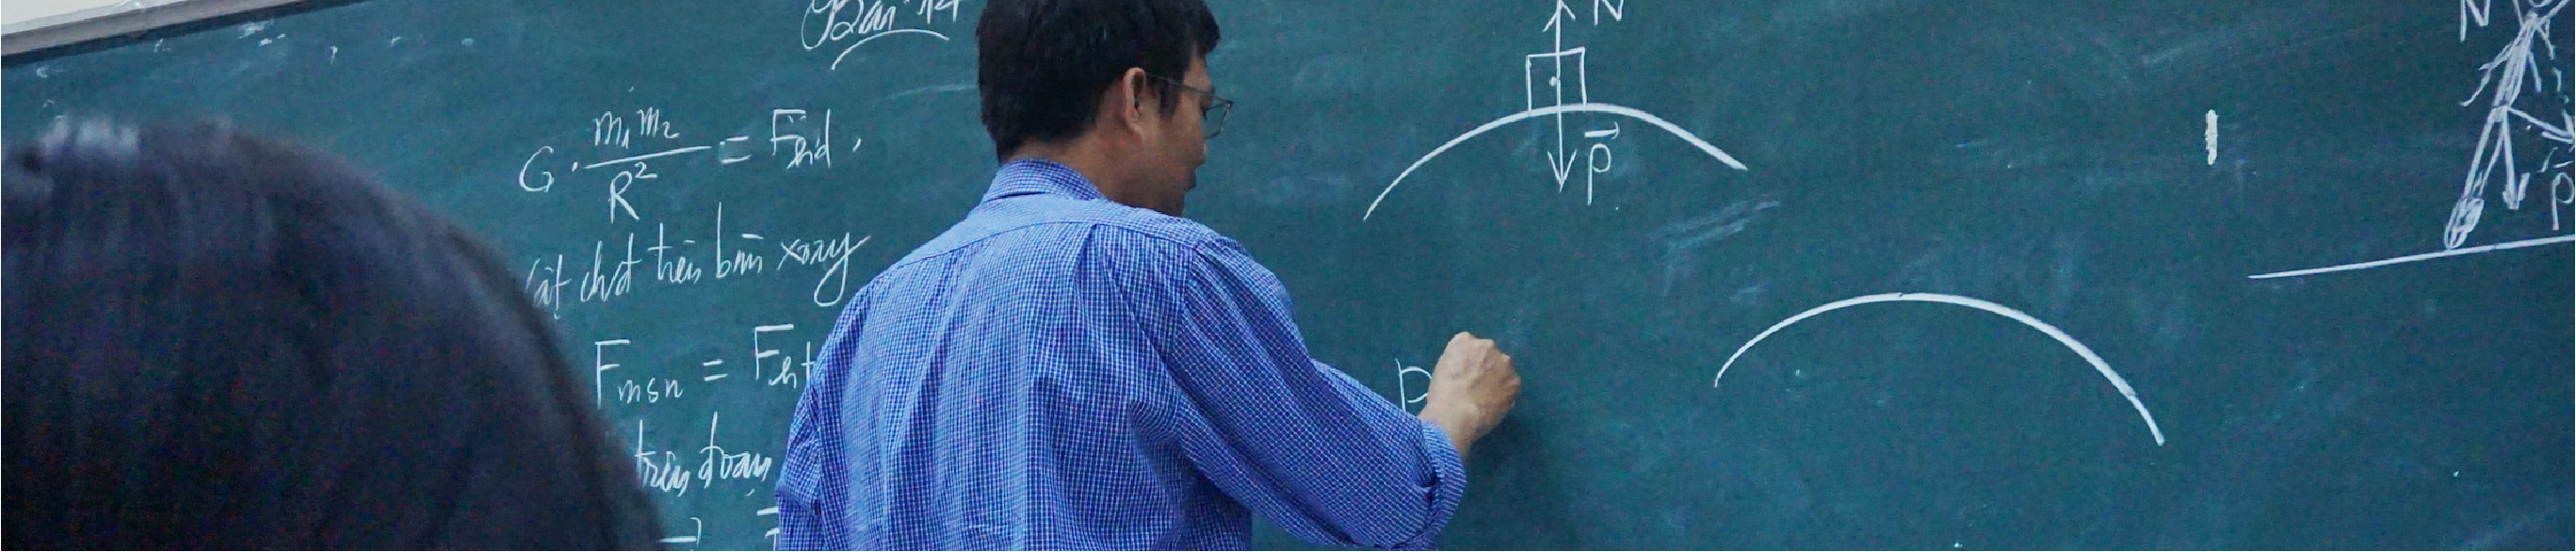 Bài 14
G. m₁m₂/R² = Fhd.
vật chất trên bàn xoay
Fmsn = Fht
trên đoạn
N
P
P
N
P